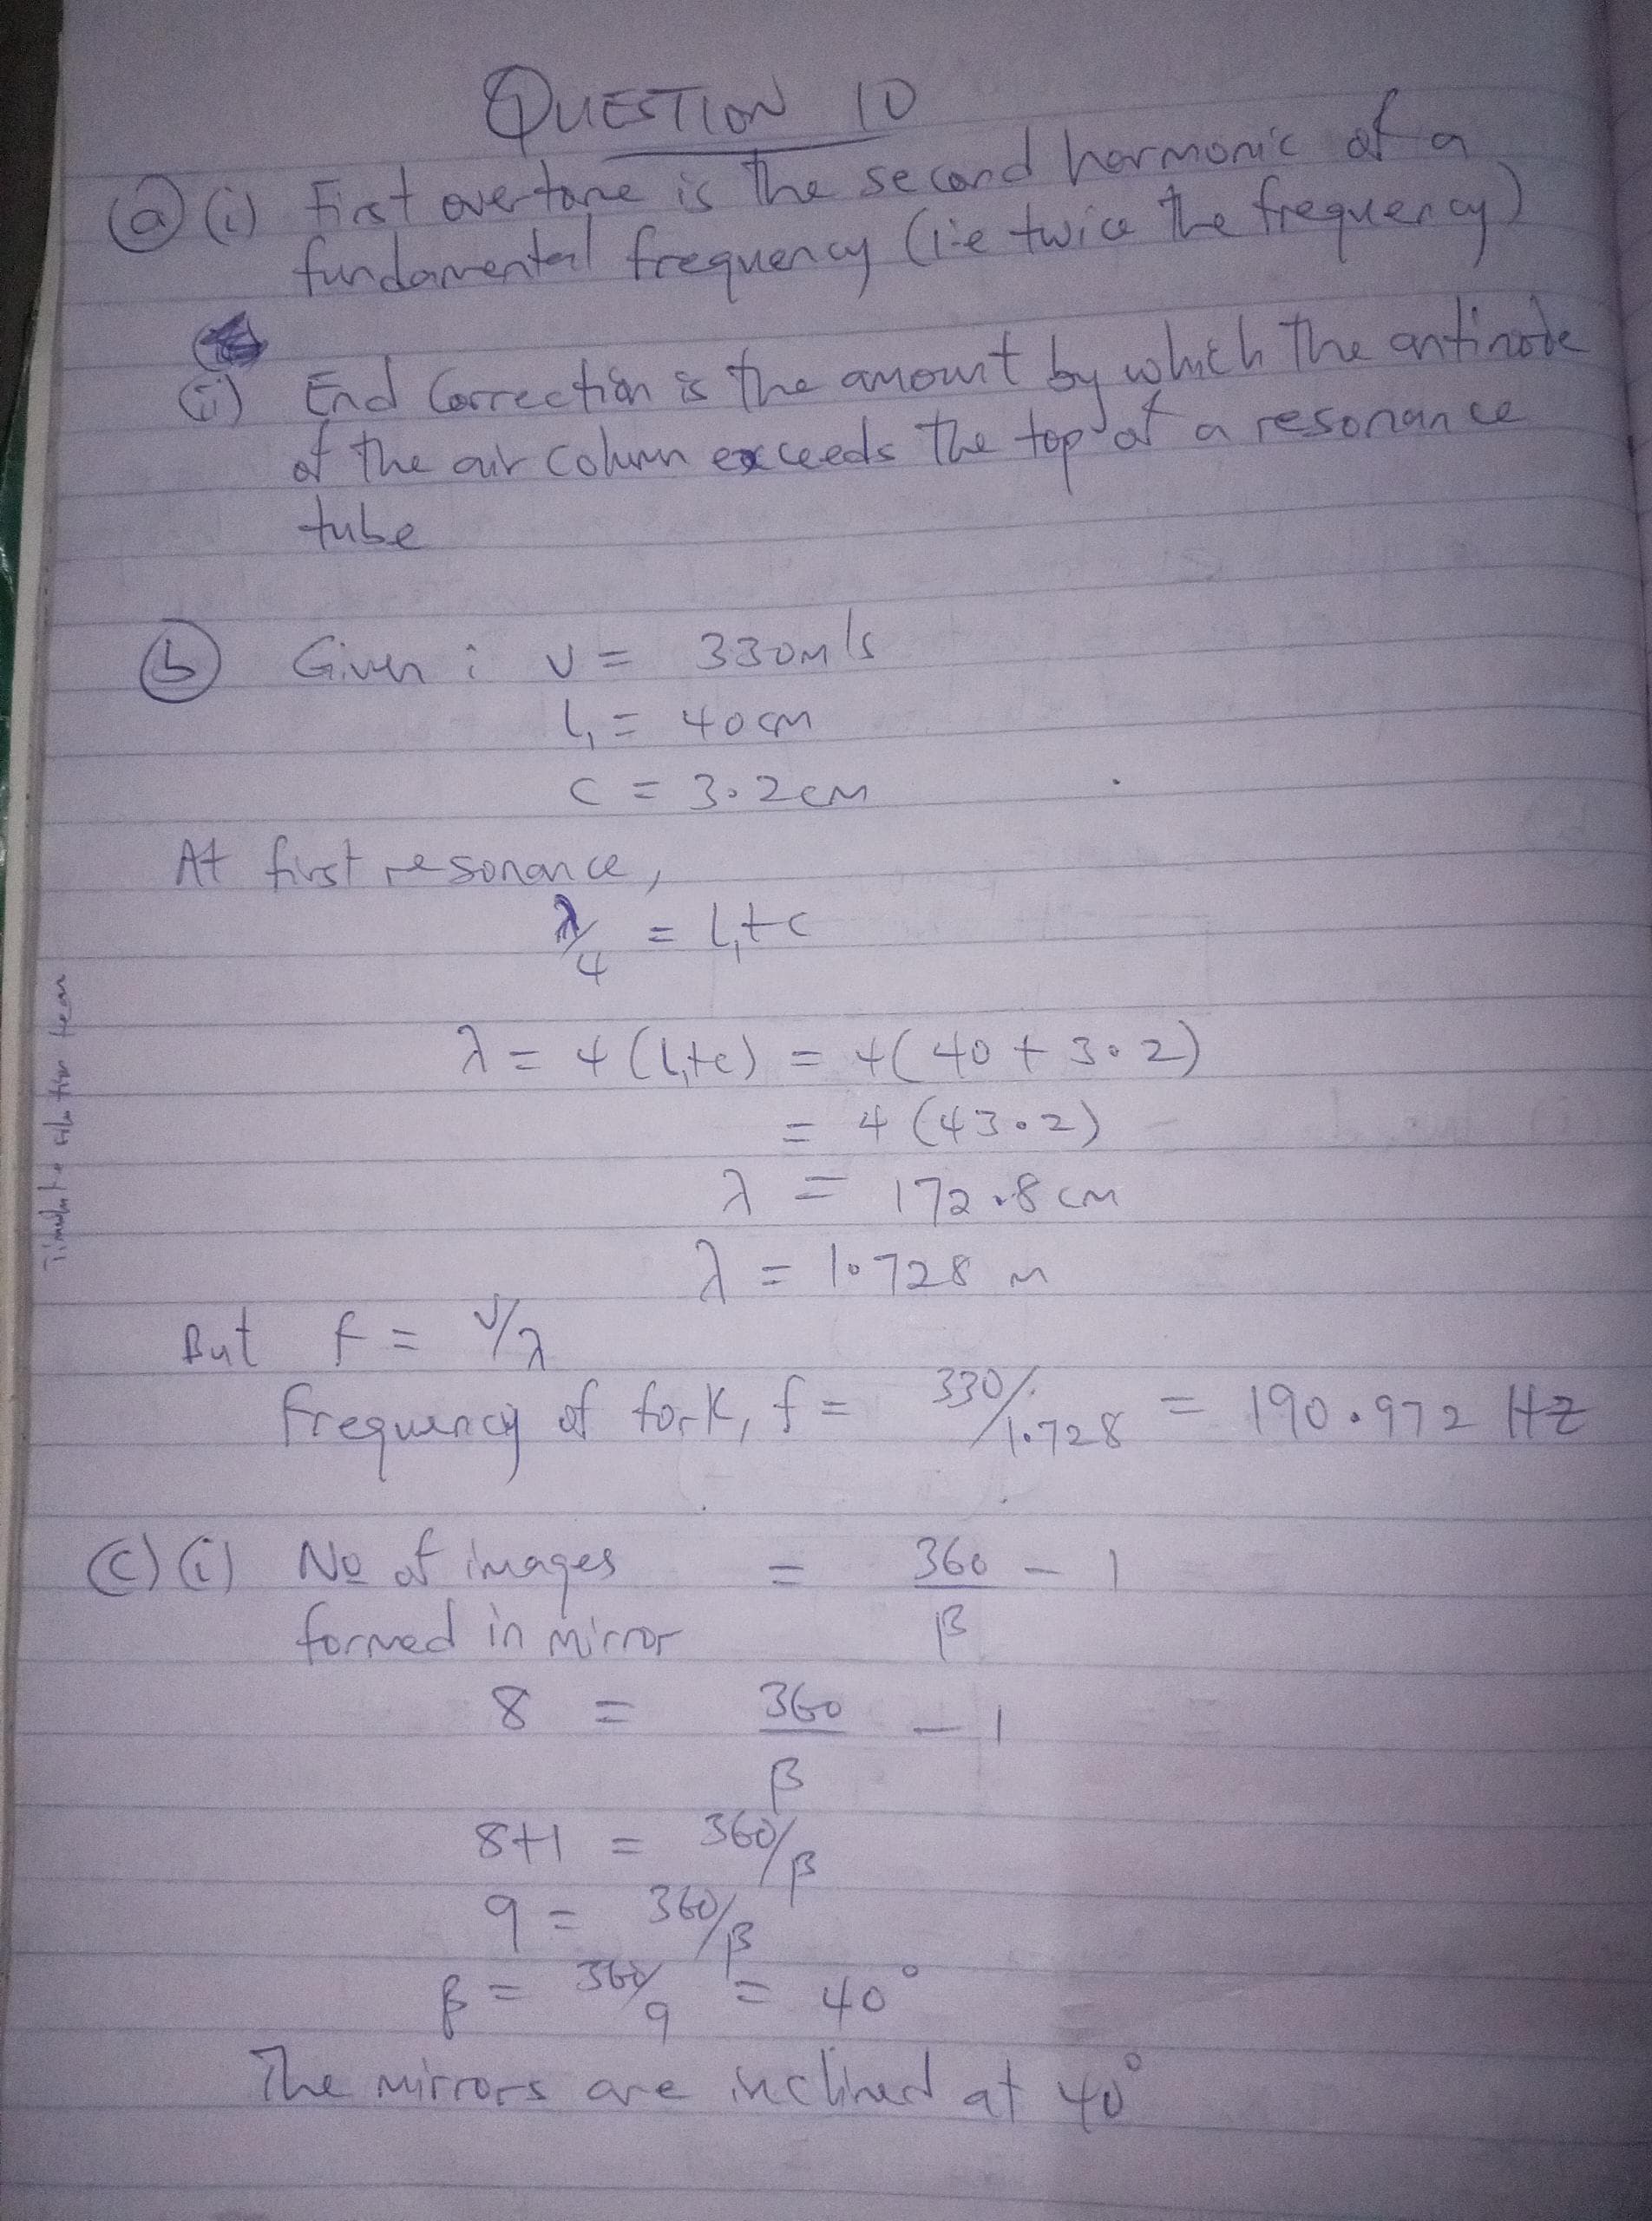 QUESTION 10
(a) (i) First overtone is the second harmonic of a
fundamental frequency (i.e twice the frequency)
(ii) End Correction is the amount by which the antinode
of the air column exceeds the top of a resonance
tube
(b) Given : v = 330m/s
l₁ = 40cm
c = 3.2cm
At first resonance,
λ/4 = l₁+c
λ = 4(l₁+c) = 4(40 + 3.2)
= 4(43.2)
λ = 172.8cm
λ = 1.728 m
But f = v/λ
frequency of fork, f = 330/1.728 = 190.972 Hz
(c) (i) No of images = 360/β - 1
formed in mirror
8 = 360/β - 1
8+1 = 360/β
9 = 360/β
β = 360/9 = 40°
The mirrors are inclined at 40°
solution team